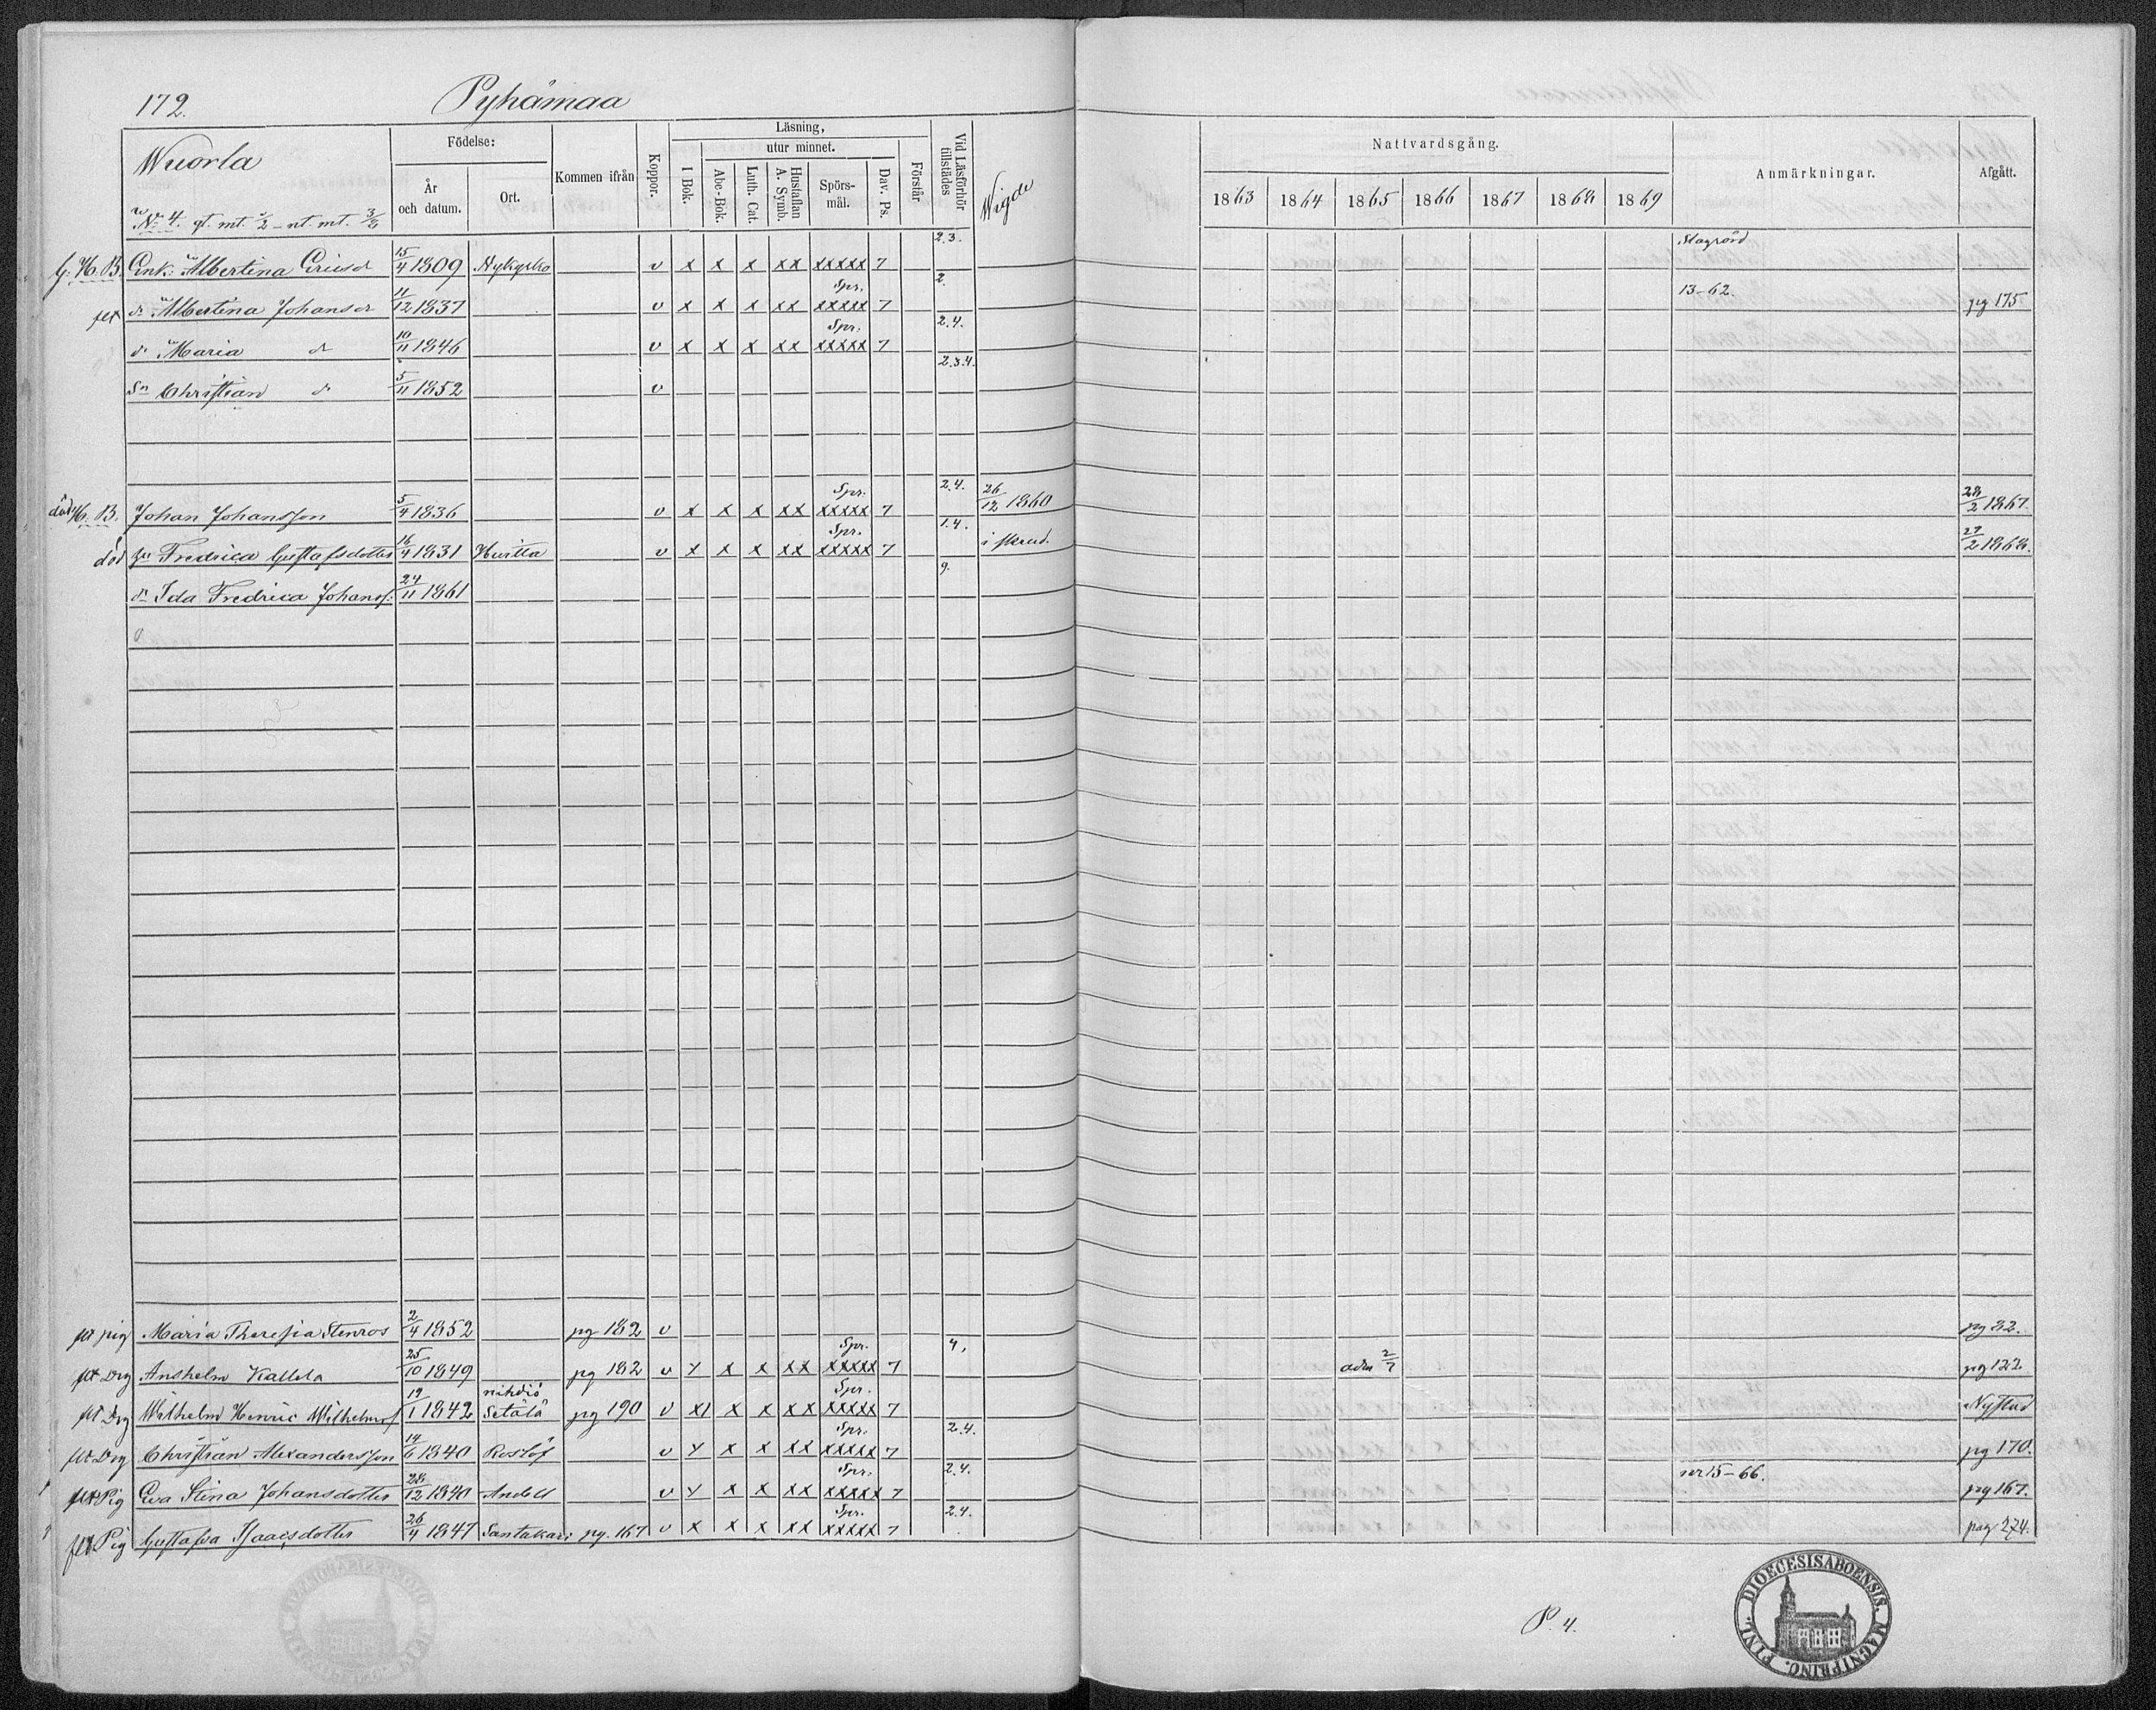 172. Pyhämaa
Wuorla
No 4. gt. mt. 1/2 - nt. mt. 3/8
Födelse:
År och datum.
Ort.
Kommen ifrån
Koppor.
Läsning,
utur minnet.
I Bok.
Abc-Bok.
Luth. Cat.
Hustaflan A. Symb.
Spörsmål.
Dav. Ps.
Förstår
Vid Läsförhör tillstädes
Wigde
Nattvardsgång.
1863 1864 1865 1866 1867 1868 1869
Anmärkningar.
Afgått.
G. H. B. Enk: Albertina Ericsd 15/4 1809 Nykyrko v x x x xx xxxxx 7 2.3.
flt dr Albertina Johansdr 11/12 1837 v x x x xx Spr. xxxxx 7 2. 13-62. pg 175
dr Maria dr 10/11 1846 v x x x xx Spr. xxxxx 7 2.4.
Sn Christian dr 5/11 1852 v 2.3.4.
död H. B. Johan Johansson 5/4 1836 v x x x xx Spr. xxxxx 7 2.4. 26/12 1860 28/2 1867.
död Fredrica Gustafsdotter 16/4 1831 Huitta v x x x xx Spr. xxxxx 7 1.4. 27/2 1868.
dr Ida Fredrica Johansd. 24/11 1861 9.
flt pig Maria Theresia Stenros 2/4 1852 pg 182 v pg 82.
flt Drg Anshelm Kallela 25/10 1849 pg 182 v x x x xx Spr. xxxxx 7 4, adm 2/7 pg 122.
flt Drg Wilhelm Henric Wilhelmsf 19/1 1842 nihdiö Setälä pg 190 v x x x xx Spr. xxxxx 7 Nystad
flt Drg Christian Alexandersson 14/6 1840 Roslöf v x x x xx Spr. xxxxx 7 2.4. pg 170.
flt Pig Eva Stina Johansdotter 28/12 1840 Andell v x x x xx Spr. xxxxx 7 2.4. 15-66. pg 167.
flt Pig Gustafva Isaacsdotter 26/4 1847 Santakari pg. 167 v x x x xx Spr. xxxxx 7 2.4. pag 274.
P. 4.
DIOECESIS ABOENSIS. MAGNI PRINC. FINL.